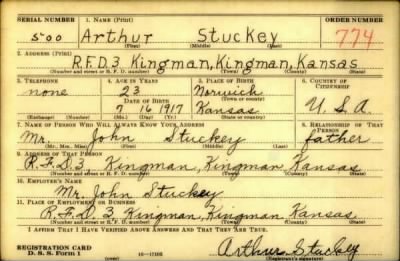 SERIAL NUMBER 1. NAME (Print) ORDER NUMBER
500 Arthur Stuckey 774
(First) (Middle) (Last)
2. ADDRESS (Print)
R.F.D.3 Kingman, Kingman, Kansas
(Number and street or R. F. D. number) (Town) (County) (State)
3. TELEPHONE 4. AGE IN YEARS 5. PLACE OF BIRTH 6. COUNTRY OF CITIZENSHIP
none 23 Norwich
DATE OF BIRTH (Town or county)
7 16 1917 Kansas U.S.A.
(Exchange) (Number) (Mo.) (Day) (Yr.) (State or country)
7. NAME OF PERSON WHO WILL ALWAYS KNOW YOUR ADDRESS 8. RELATIONSHIP OF THAT PERSON
Mr. John Stuckey father
(Mr., Mrs., Miss) (First) (Middle) (Last)
9. ADDRESS OF THAT PERSON
R.F.D.3 Kingman, Kingman Kansas
(Number and street or R. F. D. number) (Town) (County) (State)
10. EMPLOYER'S NAME
Mr. John Stuckey
11. PLACE OF EMPLOYMENT OR BUSINESS
R.F.D. 3 Kingman, Kingman Kansas
(Number and street or R. F. D. number) (Town) (County) (State)
I AFFIRM THAT I HAVE VERIFIED ABOVE ANSWERS AND THAT THEY ARE TRUE.
REGISTRATION CARD
D. S. S. Form 1 Arthur Stuckey
(Registrant's signature)